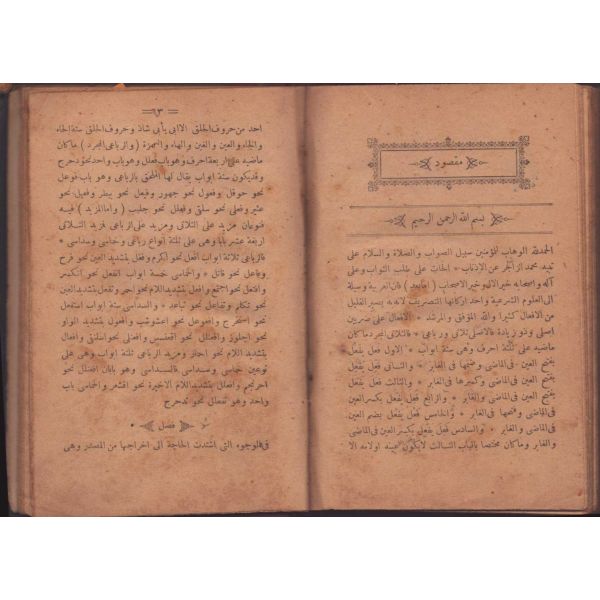 مقصود
بسم الله الرحمن الرحيم
الحمدلله الوهاب للمؤمنين سبيل الصواب والصلاة والسلام على
نبيه محمد الزاجر عن الاذناب * الحاث على طلب الثواب وعلى
آله واصحابه خير الآل وخير الاصحاب ( امابعد ) فان العربية وسيلة
الى العلوم الشرعية واحد اركانها التصريف لانه به يصير القليل
من الافعال كثيرا والله الموفق والمرشد * الافعال على ضربين
اصلى وذو زيادة فالاصلى ثلاثى ورباعى * فالثلاثى المجرد ماكان
ماضيه على ثلثة احرف وهى ستة ابواب * الاول فعل يفعل
بفتح العين فى الماضى وضمها فى الغابر * والثانى فعل يفعل
بفتح العين فى الماضى وكسرها فى الغابر * والثالث فعل يفعل
بفتح العين فى الماضى والغابر * والرابع فعل يفعل بكسر العين
فى الماضى وفتحها فى الغابر * والخامس فعل يفعل بضم العين
فى الماضى والغابر * والسادس فعل يفعل بكسر العين فى الماضى
والغابر وماكان مختصا بالباب الثالث لايكون عينه اولامه الا
٣
احد من حروف الحلق الاابى يأبى شاذ وحروف الحلق ستة الحاء
والخاء والعين والغين والهاء والهمزة ( والرباعى المجرد ) ماكان
ماضيه على اربعة احرف وهو باب فعلل وهو باب واحد نحو دحرج
وقد يكون ستة ابواب يقال لها الملحق بالرباعى وهو باب فوعل
نحو حوقل وفعول نحو جهور وفيعل نحو بيطر وفعيل نحو
عثير وفعلى نحو سلقى وفعلل نحو جلبب ( واما المزيد ) فيه
فنوعان مزيد على الثلاثى ومزيد على الرباعى فمزيد الثلاثى
اربعة عشر بابا وهى على ثلثة انواع رباعى وخماسى وسداسى *
فالرباعى ثلاثة ابواب افعل نحو اكرم وفعل بتشديد العين نحو فرح
وفاعل نحو قاتل * والخماسى خمسة ابواب انفعل نحو انكسر
وافتعل نحو اجتمع وافعل بتشديد اللام نحو احمر وتفعل بتشديد العين
نحو تكلم وتفاعل نحو تباعد * والسداسى ستة ابواب استفعل
نحو استخرج وافعوعل نحو اعشوشب وافعول بتشديد الواو
نحو اجلوز وافعنلل نحو اقعنسس وافعنلى نحو اسلنقى وافعال
بتشديد اللام نحو احمار ومزيد الرباعى ثلثة ابواب وهى على
نوعين خماسى وسداسى فالسداسى وهو بابان افعنلل نحو
احرنجم وافعلل بتشديد اللام الاخيرة نحو اقشعر والخماسى باب
واحد وهو تفعلل نحو تدحرج
فصل
فى الوجوه التى اشتدت الحاجة الى اخراجها من المصدر وهى